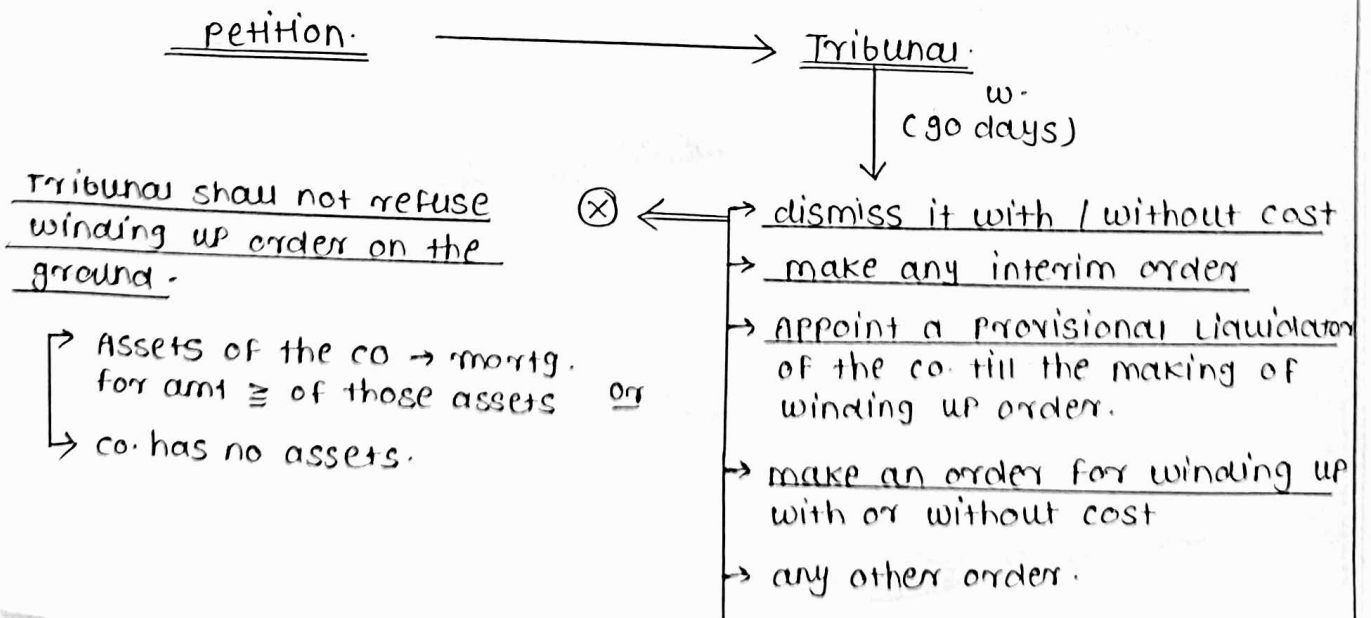 Petition.
Tribunal.
w.
(90 days)
Tribunal shall not refuse
winding up order on the
ground.
Assets of the co → mortg.
for amt ≧ of those assets or
co. has no assets.
ⓧ
dismiss it with / without cost
make any interim order
Appoint a Provisional Liquidator
of the co. till the making of
winding up order.
make an order for winding up
with or without cost
any other order.